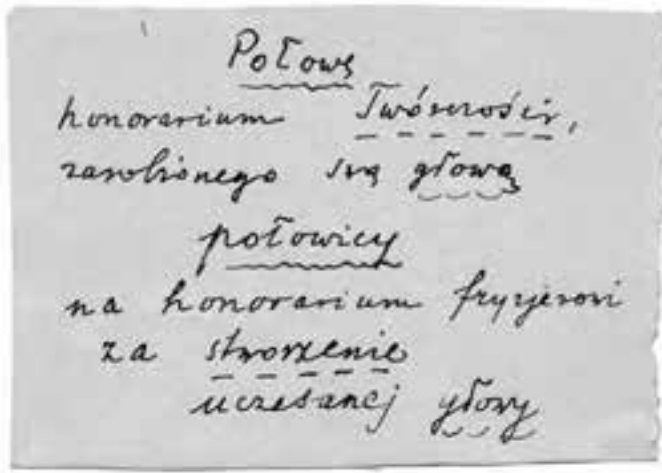 Połowę
honorarium Twórczości,
zarobionego swą głową
połowicy
na honorarium fryzjerowi
za stworzenie
uczesanej głowy